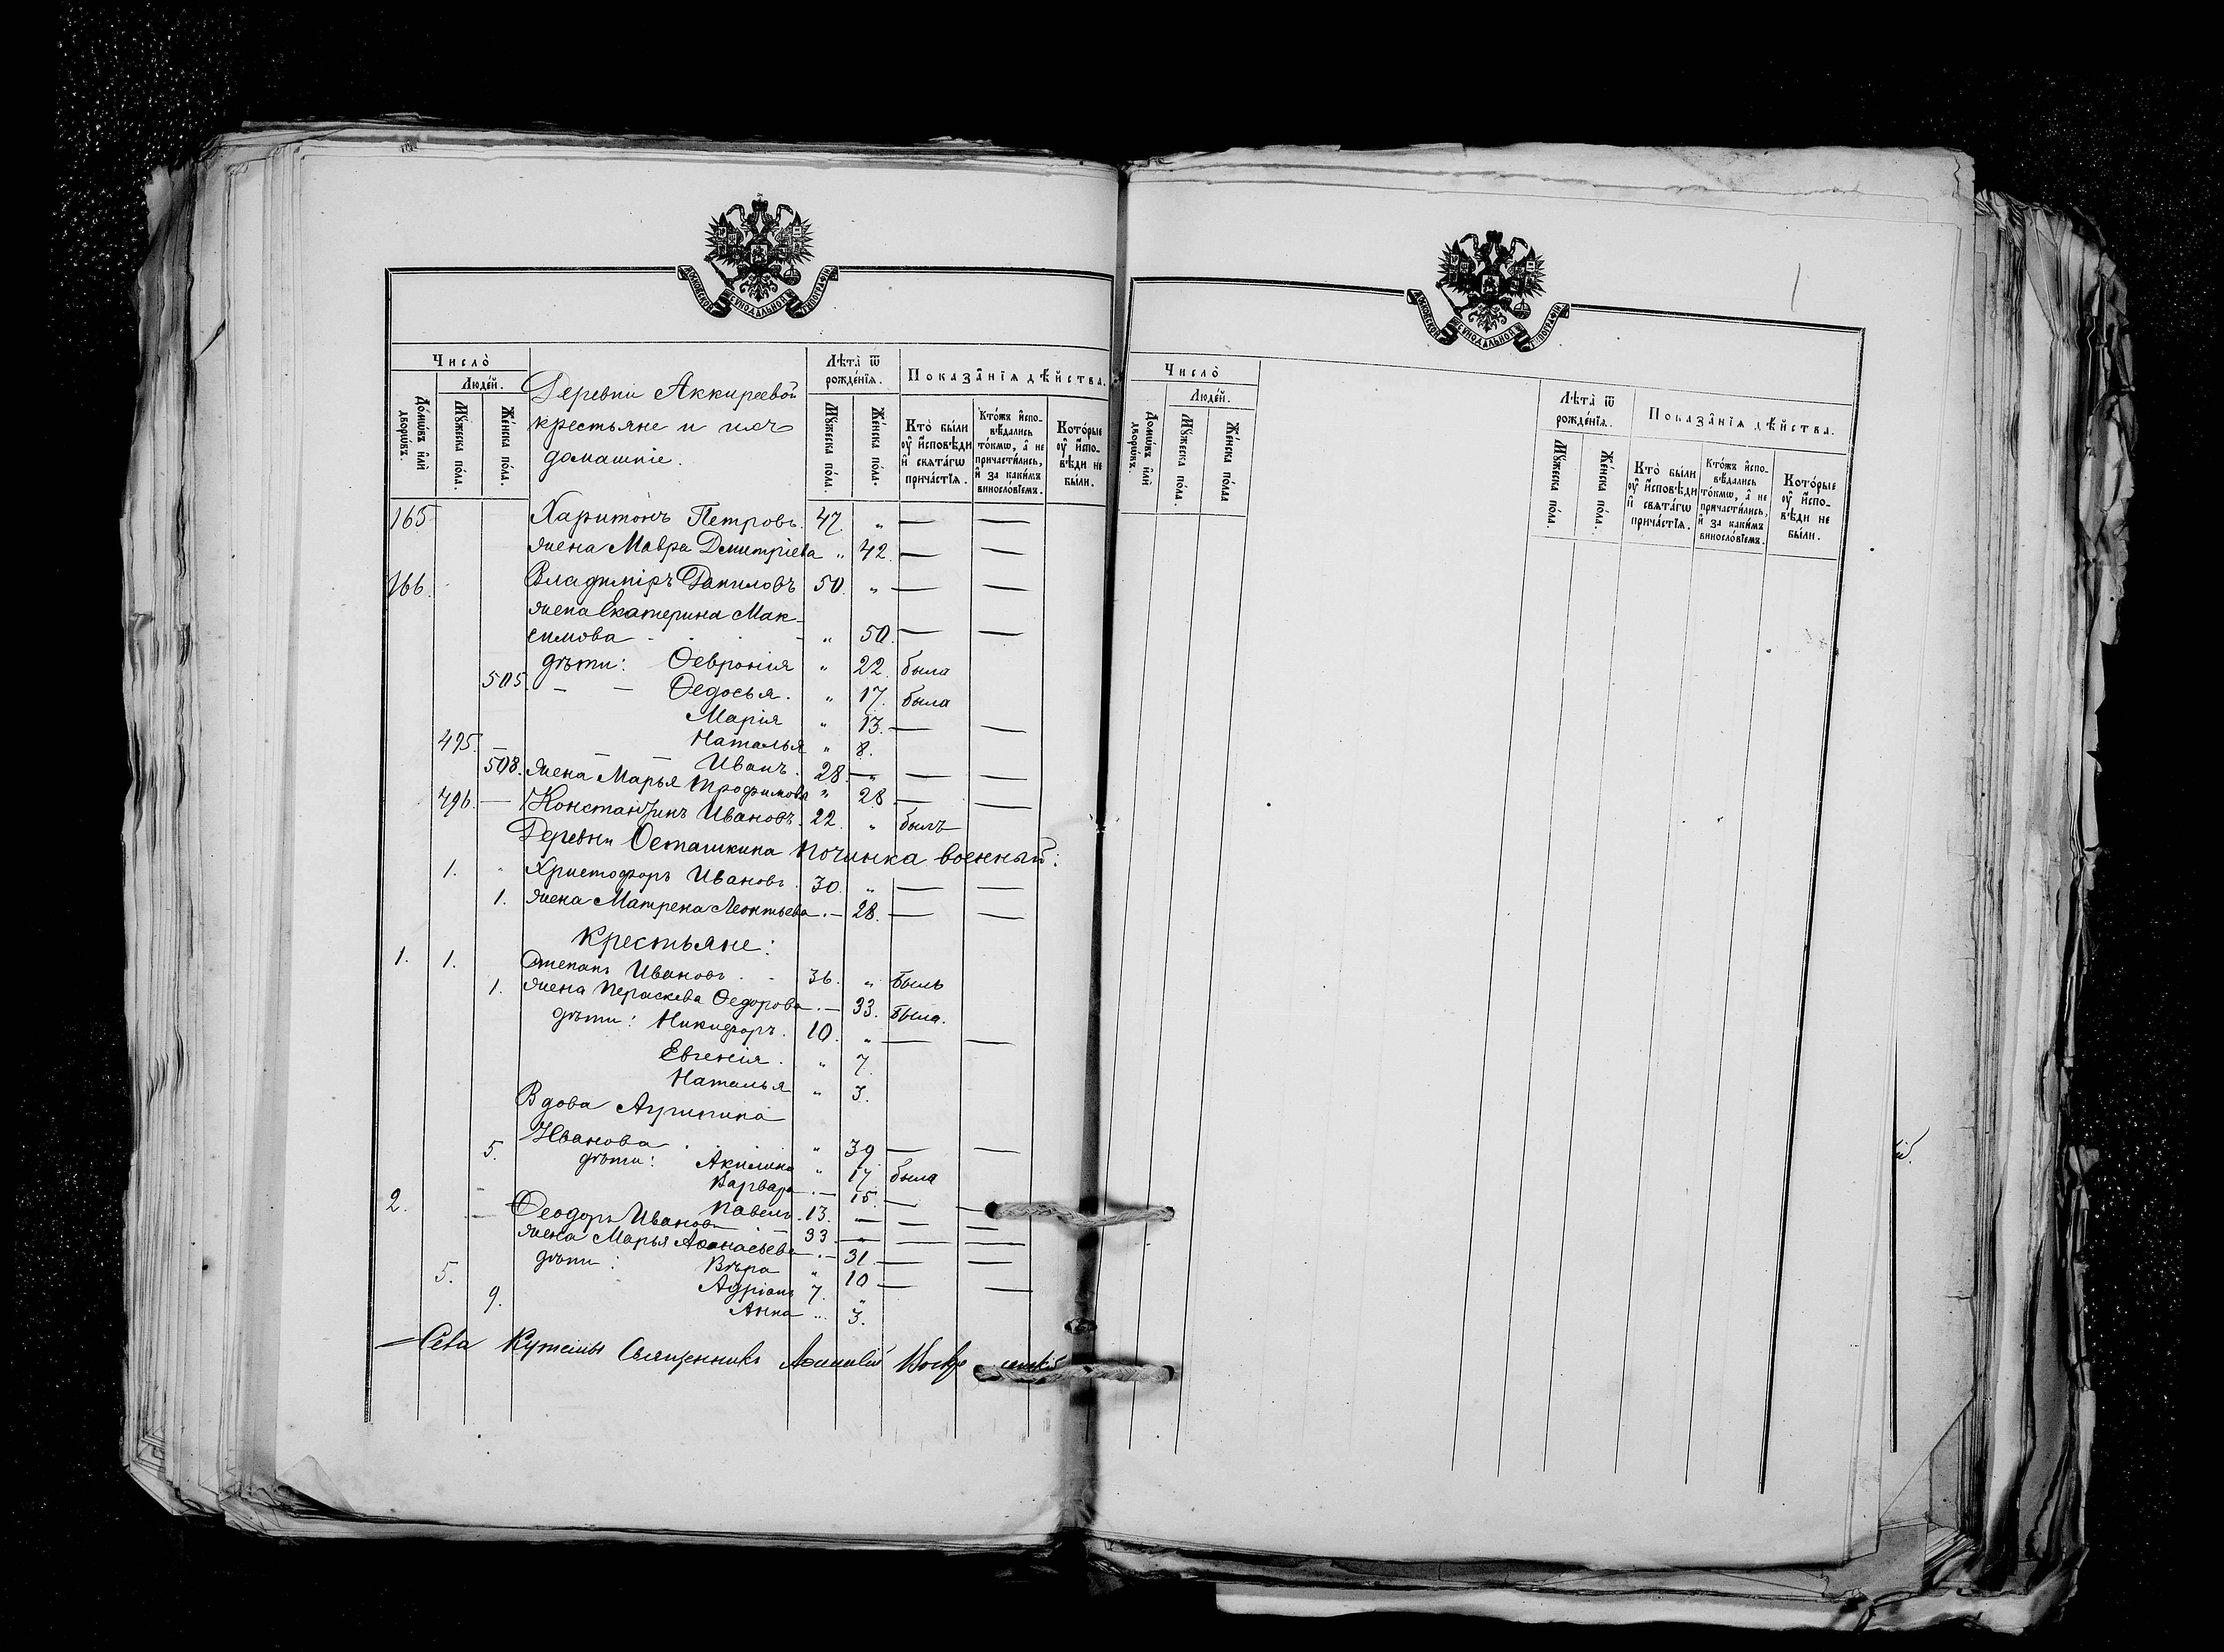 МОСКОВСКОЙ СѴНОДАЛЬНОЙ ТИПОГРАФІИ
Число̀
Людéй.
Домѡ́въ и҆лѝ дворѡ́въ.
Мꙋ́жеска по́ла.
Же́нска по́ла.
Деревни Аккиреевой
крестьяне и ихъ
домашніе.
Лѣта̀ ѿ рожде́нїѧ.
Мꙋ́жеска по́ла.
Же́нска по́ла.
Показа̂нїѧ дѣ́йства.
Кто̀ бы́ли ᲂу҆ и҆сповѣди и҆ свѧта́гѡ прича́стїѧ.
Кто́жъ и҆спо-вѣдались то́кмѡ, а҆ не причасти́лись, и҆ за каки́мъ винословїемъ.
Кото́рые ᲂу҆ и҆спо-вѣди не бы́ли.
165. Харитонъ Петровъ. 47. „ — —
жена Мавра Дмитріева „ 42. — —
166. Владиміръ Даниловъ 50. „ — —
жена Екатерина Мак-
симова - „ 50. — —
дѣти: Ѳевронія „ 22. была
505. — — Ѳедосья. „ 17. была
Марія „ 13. — —
Наталья „ 8.
495. — — — Иванъ. 28. „ — —
508. жена Марья Трофимова „ 28 — —
496. — Константинъ Ивановъ. 22. „ былъ
Деревни Осташкина починка военный:
1. „ Христофоръ Ивановъ. 30. „ — —
1. жена Матрена Леонтьева. — 28. — —
Крестьяне:
1. 1. Степанъ Ивановъ. - 36. „ былъ
1. жена Пераскева Ѳедорова. — 33. была.
дѣти: Никифоръ. 10. „ — —
Евгенія. „ 7.
Наталья „ 3.
Вдова Агрипина
Иванова. „ 39. — —
5. дѣти: Акилина „ 17. была
Варвара. — 15. — —
— Павелъ. 13. — — —
2. — Ѳеодоръ Ивановъ — 33. „ — —
жена Марья Аѳанасьева. — 31. — —
дѣти: Вѣра „ 10 — —
5. Адріанъ 7. „
9. Анна „ 3.
Села Священникъ
МОСКОВСКОЙ СѴНОДАЛЬНОЙ ТИПОГРАФІИ
Число̀
Людéй.
Домѡ́въ и҆лѝ дворѡ́въ.
Мꙋ́жеска по́ла.
Же́нска по́лаа
Лѣта̀ ѿ рожде́нїѧ.
Мꙋ́жеска по́ла.
Же́нска по́ла.
Показа̂нїѧ дѣ́йства.
Кто̀ бы́ли ᲂу҆ и҆сповѣди и҆ свѧта́гѡ прича́стїѧ.
Кто́жъ и҆спо-вѣдались то́кмѡ, а҆ не причасти́лись, и҆ за каки́мъ винословїемъ.
Кото́рые ᲂу҆ и҆спо-вѣди не бы́ли.